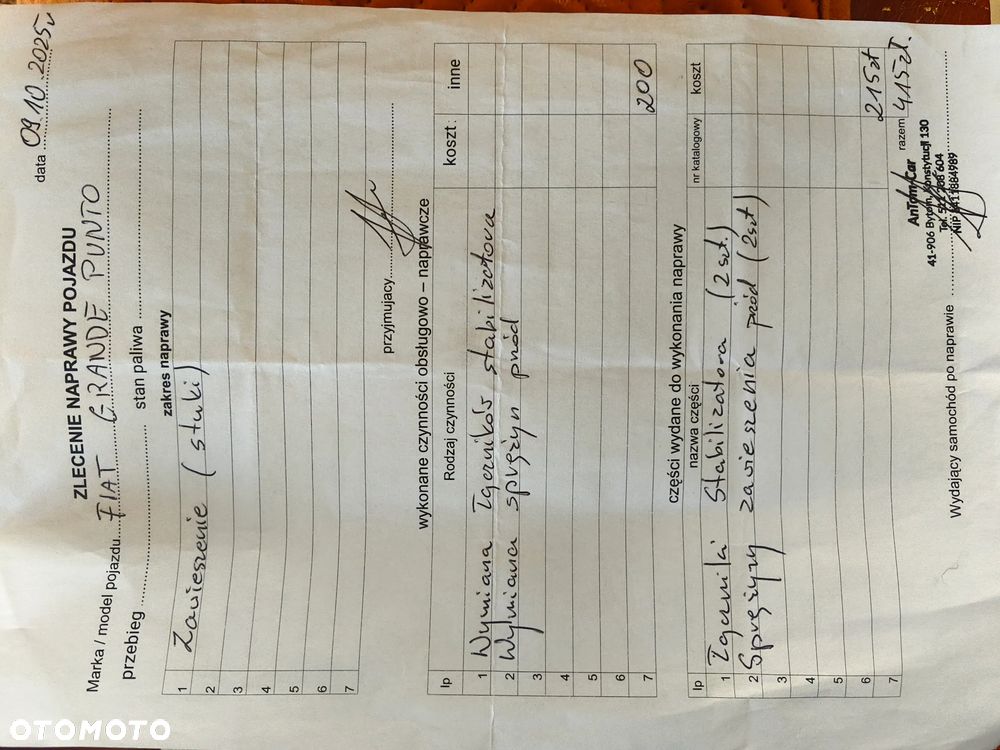 data 09.10.2025r
ZLECENIE NAPRAWY POJAZDU
Marka / model pojazdu FIAT GRANDE PUNTO
przebieg stan paliwa
zakres naprawy
1 Zawieszenie (stuki)
2
3
4
5
6
7
przyjmujacy
wykonane czynności obsługowo – naprawcze
lp Rodzaj czynności koszt: inne
1 Wymiana łączników stabilizatora
2 Wymiana sprężyn przód
3
4
5
6
7 200
części wydane do wykonania naprawy
lp nazwa części nr katalogowy koszt
1 Łączniki stabilizatora (2 szt.)
2 Sprężyny zawieszenia przód (2szt)
3
4
5
6
7 215zł
razem 415zł.
AnTom Car
41-906 Bytom, Konstytucji 130
Tel. 604
NIP
Wydający samochód po naprawie
OTOMOTO